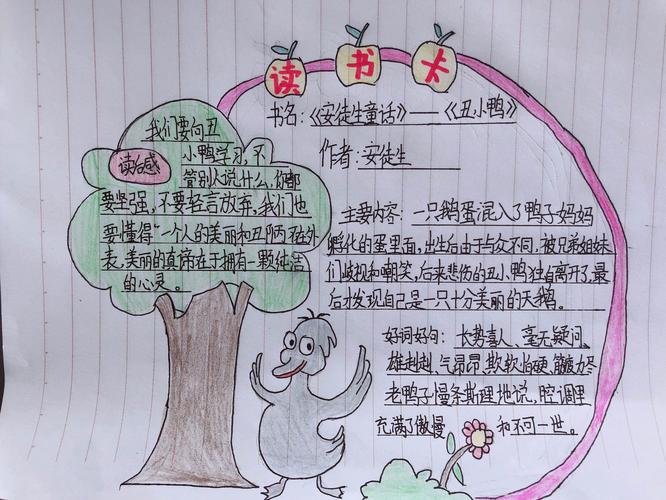 读书卡
书名:《安徒生童话》——《丑小鸭》
作者:安徒生
读后感
我们要向丑
小鸭学习,不
管别人说什么,你都
要坚强,不要轻言放弃,我们也
要懂得"一个人的美丽和丑陋不在外
表,美丽的真谛在于拥有一颗纯洁
的心灵。
主要内容:一只鹅蛋混入了鸭子妈妈
孵化的蛋里面,出生后由于与众不同,被兄弟姐妹
们歧视和嘲笑,后来悲伤的丑小鸭独自离开了,最
后才发现自己是一只十分美丽的天鹅。
好词好句:长势喜人、毫无疑问、
雄赳赳、气昂昂、欺软怕硬、筋疲力尽
老鸭子慢条斯理地说,腔调里
充满了傲慢 和不可一世。